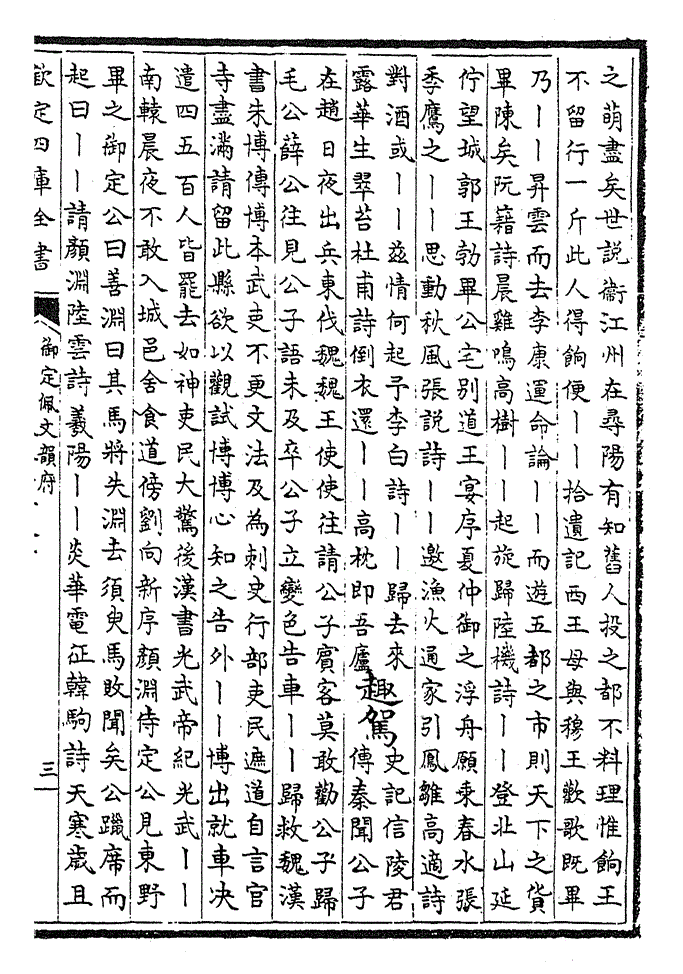 之萌盡矣世説衞江州在尋陽有知舊人投之都不料理惟餉王
不留行一斤此人得餉便丨丨拾遺記西王母與穆王歡歌既畢
乃丨丨昇雲而去李康運命論丨丨而遊五都之市則天下之貨
畢陳矣阮籍詩晨雞鳴高樹丨丨起旋歸陸機詩丨丨登北山延
佇望城郭王勃畢公宅别道王宴序夏仲御之浮舟願乘春水張
季鷹之丨丨思動秋風張説詩丨丨邀漁火通家引鳳雛高適詩
對酒或丨丨茲情何起予李白詩丨丨歸去來
露華生翠苔杜甫詩倒衣還丨丨高枕即吾廬
趣駕
史記信陵君
傳秦聞公子
在趙日夜出兵東伐魏魏王使使往請公子賓客莫敢勸公子歸
毛公薛公往見公子語未及卒公子立變色告車丨丨歸救魏漢
書朱博傳博本武吏不更文法及為刺史行部吏民遮道自言官
寺盡滿請留此縣欲以觀試博博心知之告外丨丨博出就車决
遣四五百人皆罷去如神吏民大驚後漢書光武帝紀光武丨丨
南轅晨夜不敢入城邑舍食道傍劉向新序顔淵侍定公見東野
畢之御定公曰善淵曰其馬將失淵去須臾馬敗聞矣公躐席而
起曰丨丨請顔淵陸雲詩羲陽丨丨炎華電征韓駒詩天寒歲且
欽定四庫全書
御定佩文韻府
三